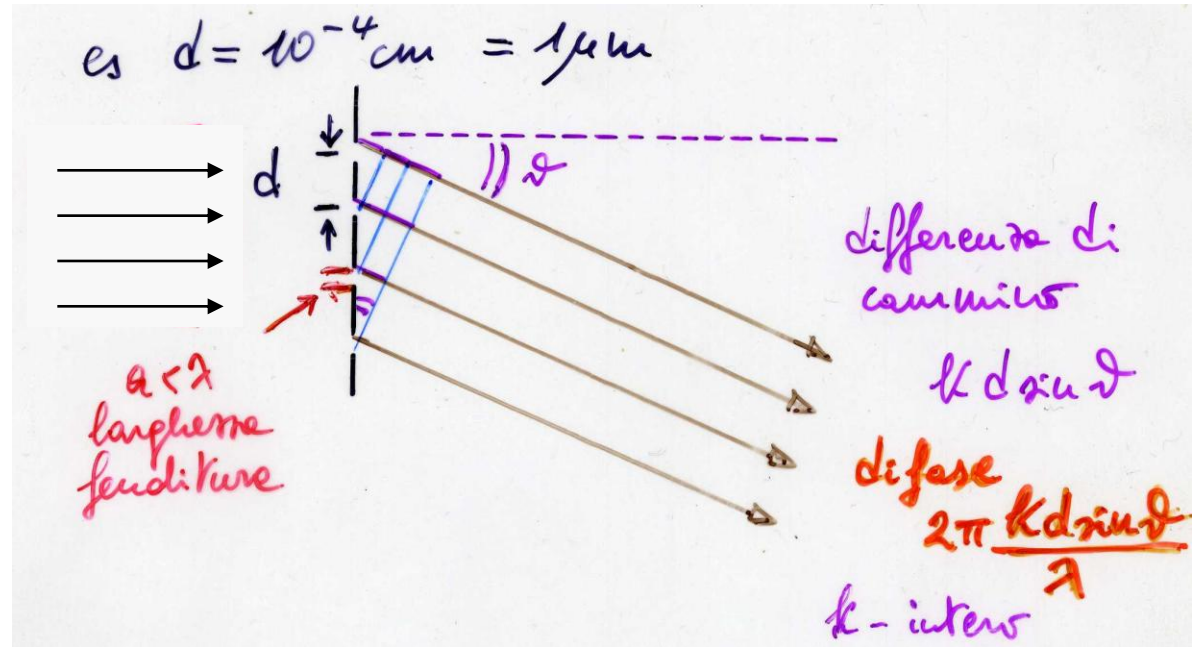 es d = 10⁻⁴ cm = 1 μm
d
ϑ
differenza di
cammino
K d sin ϑ
a < λ
larghezza
fenditure
di fase
2π K d sin ϑ / λ
k - intero